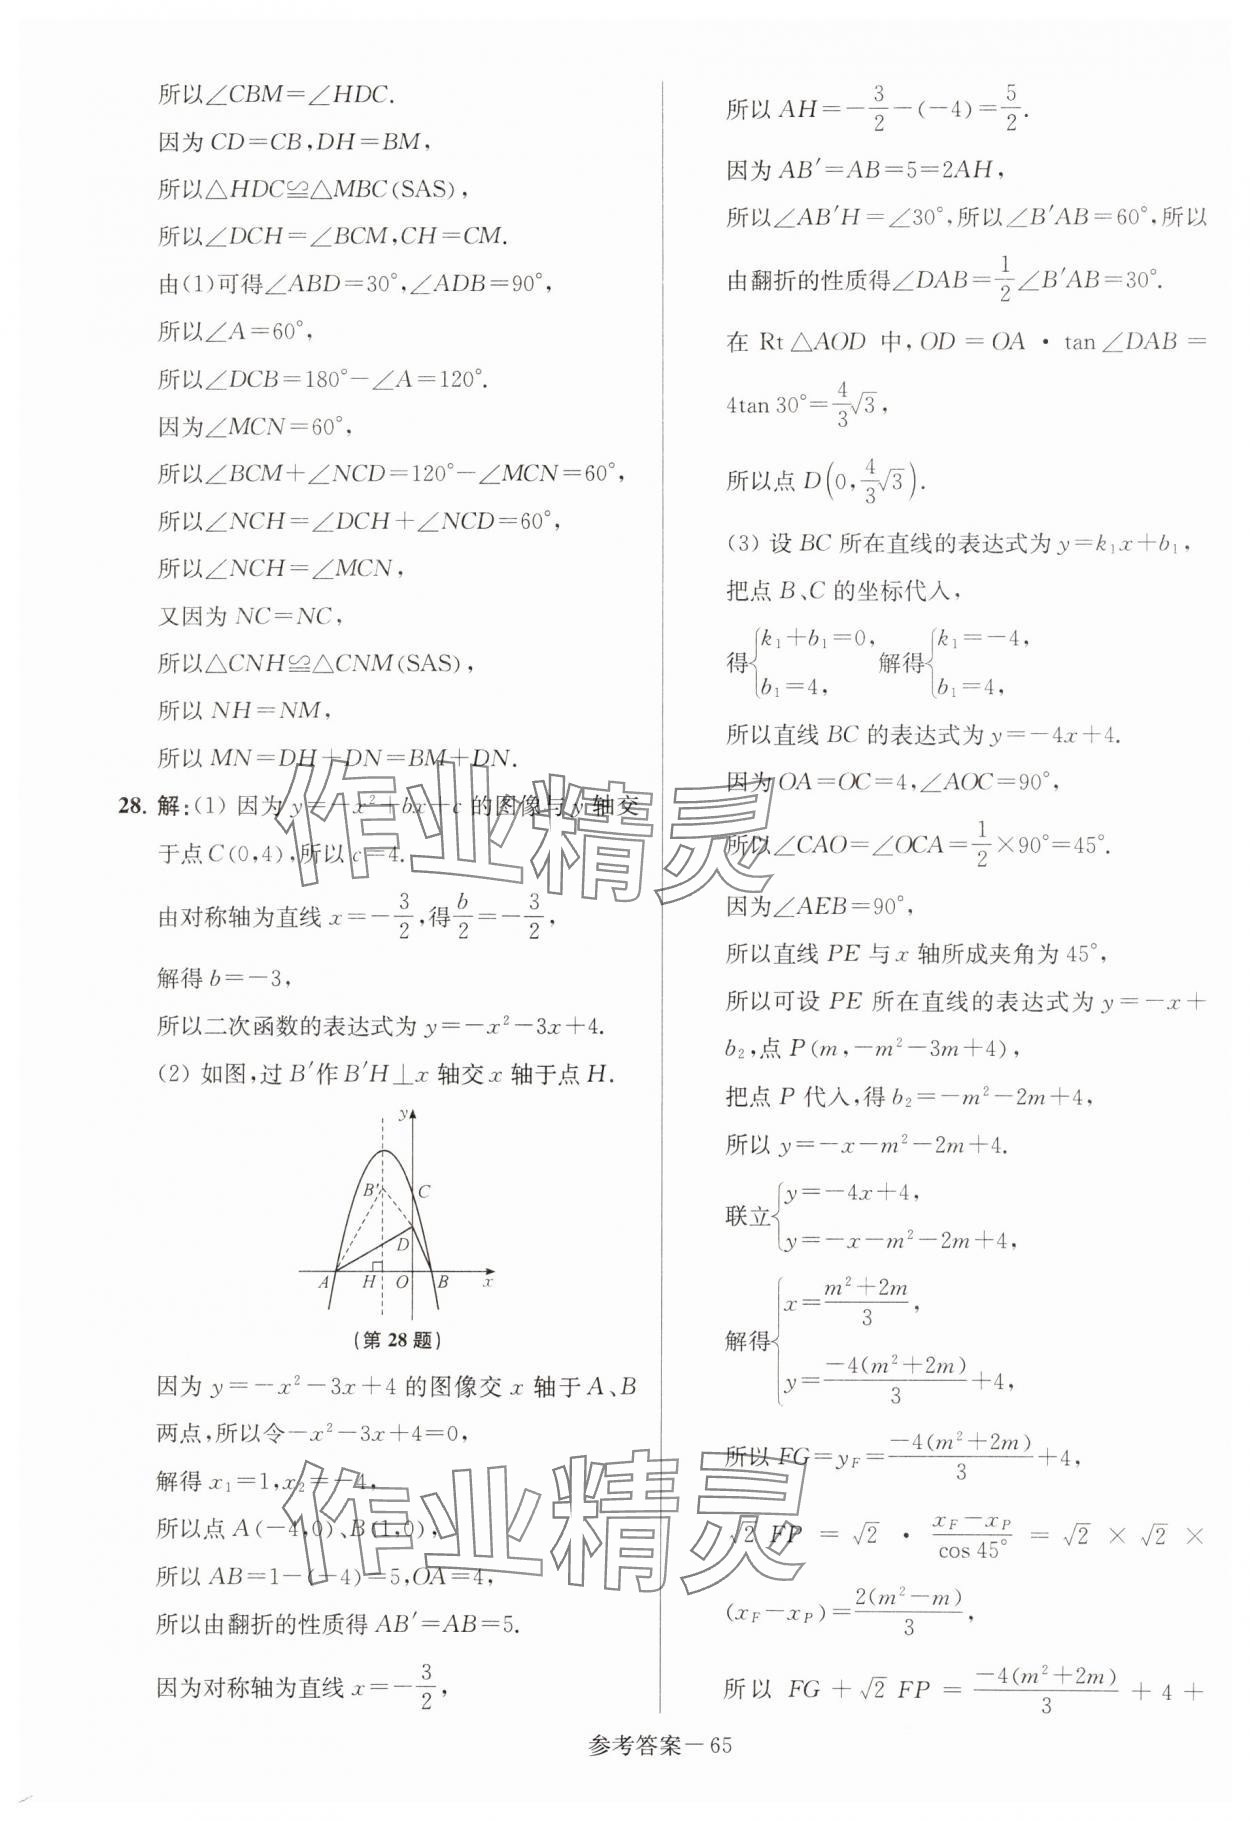 所以∠CBM=∠HDC.
因为 CD=CB,DH=BM,
所以△HDC≌△MBC(SAS),
所以∠DCH=∠BCM,CH=CM.
由(1)可得∠ABD=30°,∠ADB=90°,
所以∠A=60°,
所以∠DCB=180°-∠A=120°.
因为∠MCN=60°,
所以∠BCM+∠NCD=120°-∠MCN=60°,
所以∠NCH=∠DCH+∠NCD=60°,
所以∠NCH=∠MCN,
又因为 NC=NC,
所以△CNH≌△CNM(SAS),
所以 NH=NM,
所以 MN=DH+DN=BM+DN.
28. 解:(1) 因为 y=-x²+bx+c 的图像与 y 轴交
于点 C(0,4),所以 c=4.
由对称轴为直线 x=-3/2,得b/2=-3/2,
解得 b=-3,
所以二次函数的表达式为 y=-x²-3x+4.
(2) 如图,过 B′作 B′H⊥x 轴交 x 轴于点 H.
y
B′
C
D
A
H
O
B
x
(第 28 题)
因为 y=-x²-3x+4 的图像交 x 轴于 A、B
两点,所以令-x²-3x+4=0,
解得 x₁=1,x₂=-4,
所以点 A(-4,0)、B(1,0),
所以 AB=1-(-4)=5,OA=4,
所以由翻折的性质得 AB′=AB=5.
因为对称轴为直线 x=-3/2,
所以 AH=-3/2-(-4)=5/2.
因为 AB′=AB=5=2AH,
所以∠AB′H=∠30°,所以∠B′AB=60°,所以
由翻折的性质得∠DAB=1/2∠B′AB=30°.
在 Rt△AOD 中,OD=OA·tan∠DAB=
4tan 30°=4/3√3,
所以点 D(0,4/3√3).
(3) 设 BC 所在直线的表达式为 y=k₁x+b₁,
把点 B、C 的坐标代入,
得{k₁+b₁=0, b₁=4, 解得{k₁=-4, b₁=4,
所以直线 BC 的表达式为 y=-4x+4.
因为 OA=OC=4,∠AOC=90°,
所以∠CAO=∠OCA=1/2×90°=45°.
因为∠AEB=90°,
所以直线 PE 与 x 轴所成夹角为 45°,
所以可设 PE 所在直线的表达式为 y=-x+
b₂,点 P(m,-m²-3m+4),
把点 P 代入,得 b₂=-m²-2m+4,
所以 y=-x-m²-2m+4.
联立{y=-4x+4, y=-x-m²-2m+4,
解得{x=(m²+2m)/3, y=-4(m²+2m)/3+4,
所以 FG=y_F=-4(m²+2m)/3+4,
√2 FP = √2 · (x_F-x_P)/cos 45° = √2 × √2 ×
(x_F-x_P)=2(m²-m)/3,
所以 FG+√2 FP = -4(m²+2m)/3 + 4 +
参考答案—65
作业精灵
作业精灵